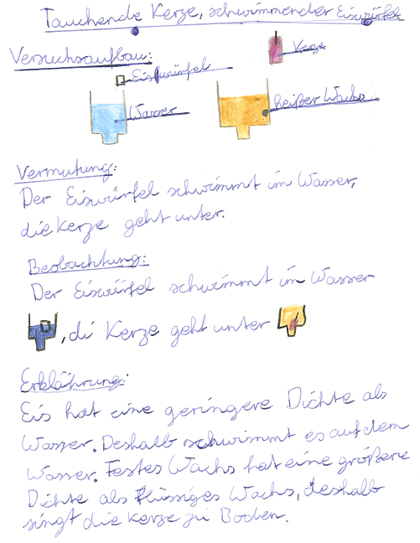 Tauchende Kerze, schwimmender Eiswürfel
Versuchsaufbau:
Kerze
Eiswürfel
Wasser
heißer Wachs
Vermutung:
Der Eiswürfel schwimmt im Wasser,
die Kerze geht unter.
Beobachtung:
Der Eiswürfel schwimmt im Wasser
, di Kerze geht unter
Erklährung:
Eis hat eine geringere Dichte als
Wasser. Deshalb schwimmt es auf dem
Wasser. Festes Wachs hat eine größere
Dichte als flüssiges Wachs, deshalb
singt die Kerze zu Boden.